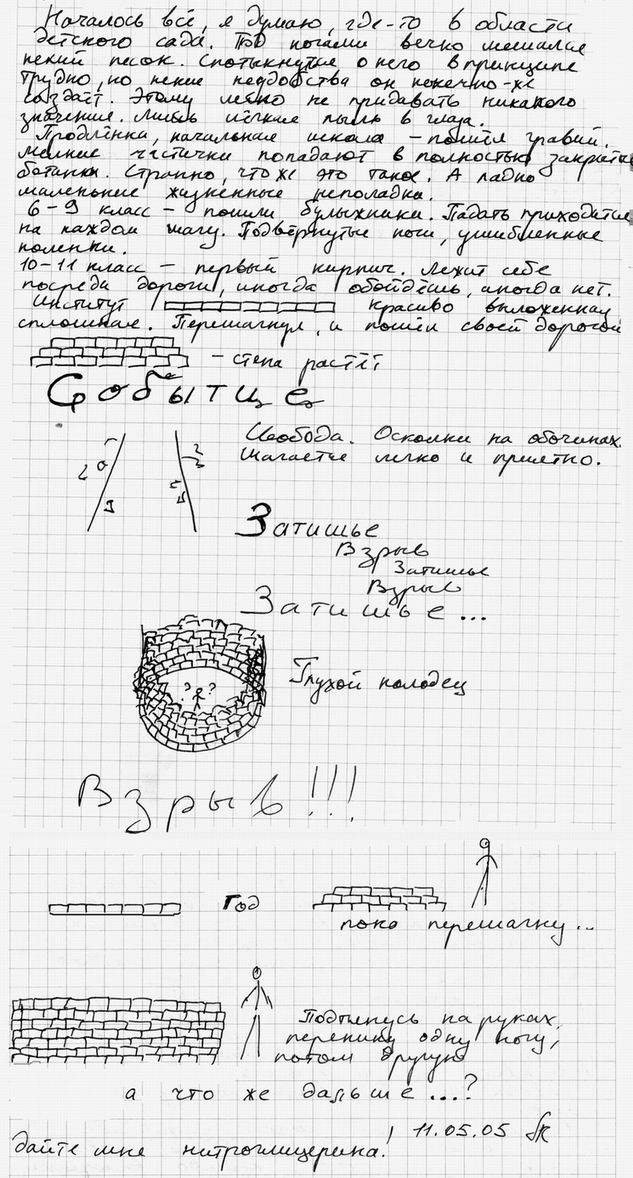 Началось всё, я думаю, где-то в области
детского сада. Под ногами вечно мешался
некий песок. Споткнутся о него в принципе
трудно, но некие неудобства он конечно-же
создаёт. Этому легко не придавать никакого
значения. Лишь лёгкие пыль в глаза.
Продлёнка, начальная школа – пошёл гравий.
Мелкие частички попадают в полностью закрытые
ботинки. Странно, что же это такое. А ладно
маленькие жизненные неполадки.
6-9 класс – пошли булыжники. Падать приходится
на каждом шагу. Подвёрнутые ноги, ушибленные
коленки.
10-11 класс – первый кирпич. Лежит себе
посреди дороги, иногда обойдёшь, иногда нет.
Институт красиво выложенная
сплошная. Перешагнул, и пошёл своей дорогой
– стена растёт
Событие
Свобода. Осколки на обочинах.
Шагается легко и приятно.
Затишье
Взрыв
Затишье
Взрыв
Затишье...
? ?
Глухой колодец
Взрыв!!!
год
пока перешагну...
Подтянусь на руках,
перекину одну ногу,
потом другую
а что же дальше...?
11.05.05
дайте мне нитроглицерина!